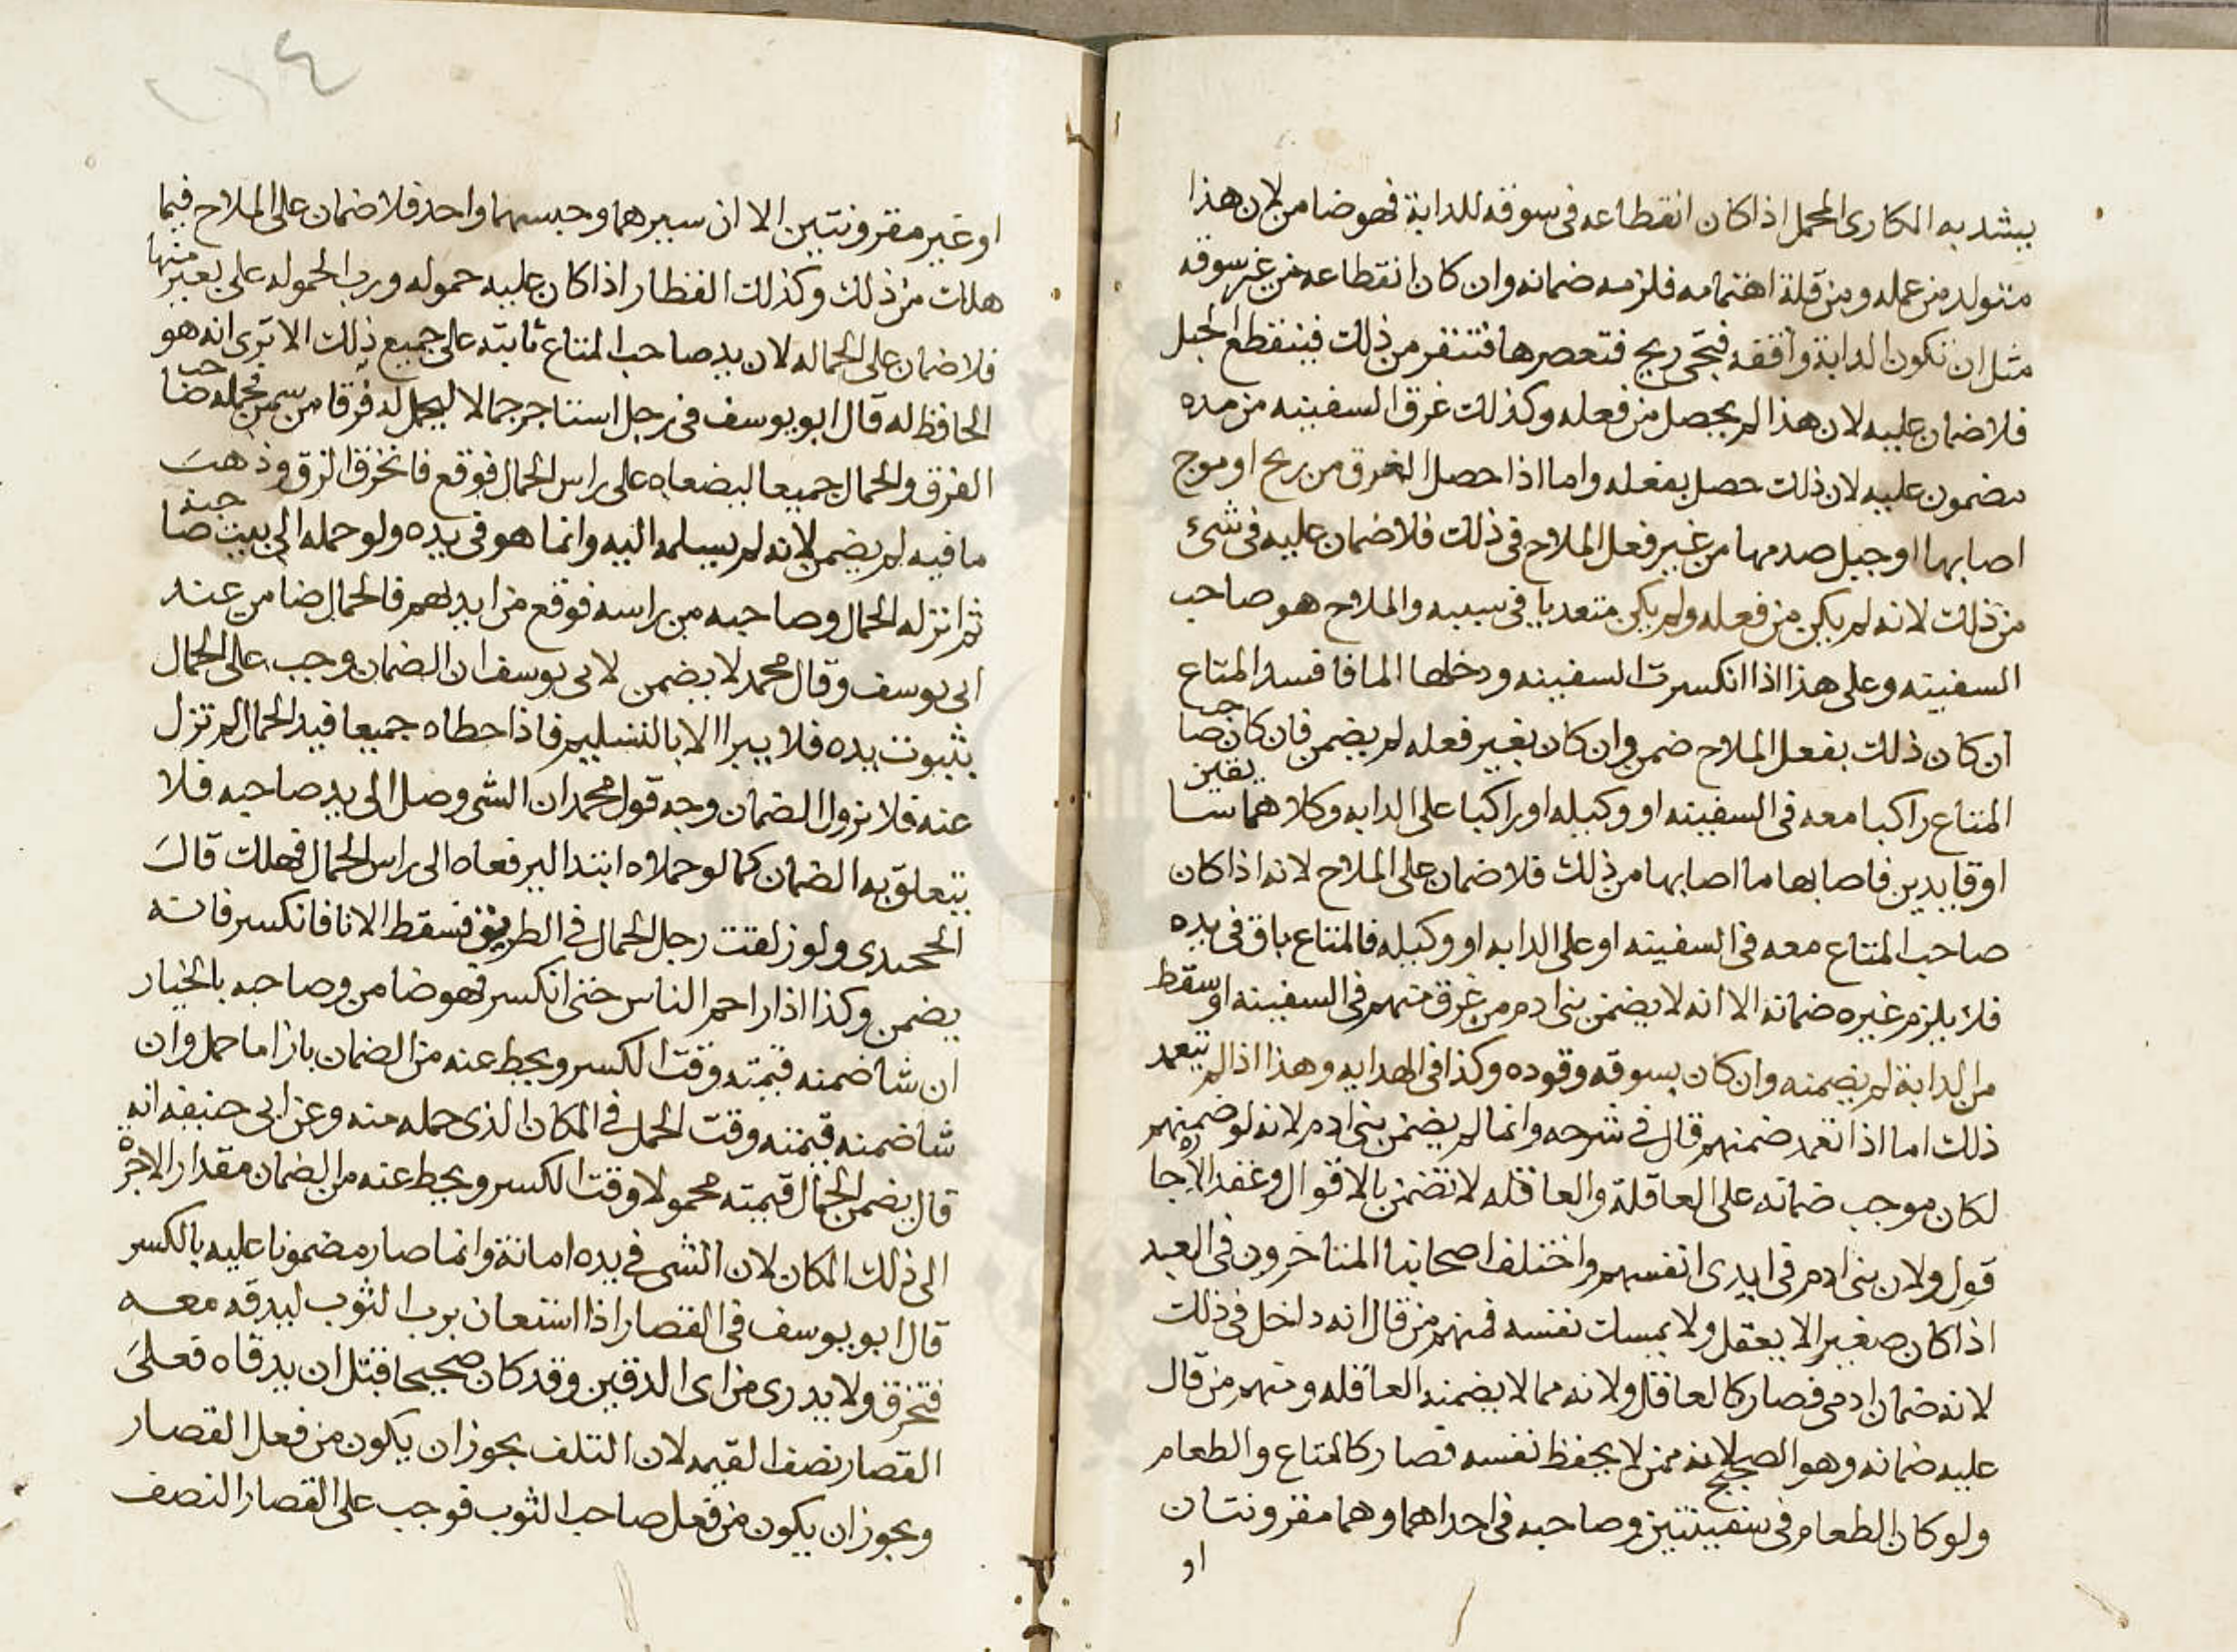 يشد به المكارى المحمل اذا كان انقطاعه فى سوقه للدابة فهو ضامن لان هذا
متولد من عمله ومن قلة اهتمامه فلزمه ضمانه وان كان انقطاعه من غير سوقه
مثل ان تكون الدابة واقفه فتجى ريح فتعصرها فتنفر من ذلك فينقطع الحبل
فلا ضمان عليه لان هذا لم يحصل من فعله وكذلك غرق السفينه من مده
مضمون عليه لان ذلك حصل بفعله واما اذا حصل الغرق من ريح او موج
اصابها او جبل صدمها من غير فعل الملاح فى ذلك فلا ضمان عليه فى شىء
من ذلك لانه لم يكن من فعله ولم يكن متعديا فى سببه والملاح هو صاحب
السفينه وعلى هذا اذا انكسرت السفينه ودخلها الما فافسد المتاع
ان كان ذلك بفعل الملاح ضمن وان كان بغير فعله لم يضمن فان كان صاحب
المتاع راكبا معه فى السفينه او وكيله او راكبا على الدابه وكلاهما سايقين
او قايدين فاصابها ما اصابها من ذلك فلا ضمان على الملاح لانه اذا كان
صاحب المتاع معه فى السفينه او على الدابه او وكيله فالمتاع باق فى يده
فلا يلزم غيره ضمانه الا انه لا يضمن بنى ادم من غرق منهم فى السفينة او سقط
من الدابة لم يضمنه وان كان بسوقه وقوده وكذا فى الهدايه وهذا اذا لم يتعمد
ذلك اما اذا تعمد ضمنهم قال فى شرحه وانما لم يضمن بنى ادم لانه لو ضمنهم
لكان موجب ضمانه على العاقلة والعاقله لا تضمن بالاقوال وعقد الاجاره
قول ولان بنى ادم فى ايدى انفسهم واختلف اصحابنا المتاخرون فى العبد
اذا كان صغيرا لا يعقل ولا يمسك نفسه فمنهم من قال انه داخل فى ذلك
لانه ضمان ادمى فصار كالعاقل ولانه مما لا يضمنه العاقله ومنهم من قال
عليه ضمانه وهو الصحيح لانه ممن لا يحفظ نفسه فصار كالمتاع والطعام
ولو كان الطعام فى سفينتين وصاحبه فى احداهما وهما مقرونتان
او
او غير مقرونتين الا ان سيرهما وحبسهما واحد فلا ضمان على الملاح فيما
هلك من ذلك وكذلك القطار اذا كان عليه حموله ورب الحموله على بعير منها
فلا ضمان على الحماله لان يد صاحب المتاع ثابته على جميع ذلك الا ترى انه هو
الحافظ له قال ابو يوسف فى رجل استاجر حمالا ليحمل له فرقا من سمن فحمله صاحب
الفرق والحمال جميعا ليضعاه على راس الحمال فوقع فانخرق الزق وذهب
ما فيه لم يضمن لانه لم يسلمه اليه وانما هو فى يده ولو حمله الى بيت صاحبه
ثم انزله الحمال وصاحبه من راسه فوقع من ايديهم فالحمال ضامن عند
ابى يوسف وقال محمد لا يضمن لابى يوسف ان الضمان وجب على الحمال
بثبوت يده فلا يبرا الا بالتسليم فاذا حطاه جميعا فيد الحمال لم تزل
عنه فلا نزول الضمان وجه قول محمد ان الشى وصل الى يد صاحبه فلا
يتعلق به الضمان كما لو حملاه ابتدا ليرفعاه الى راس الحمال فهلك قال
الخجندى ولو زلقت رجل الحمال فى الطريق فسقط الانا فانكسر فانه
يضمن وكذا اذا زاحم الناس حتى انكسر فهو ضامن وصاحبه بالخيار
ان شا ضمنه قيمته وقت الكسر ويحط عنه من الضمان بازا ما حمل وان
شا ضمنه قيمته وقت الحمل فى المكان الذى حمله منه وعن ابى حنيفه انه
قال يضمن الحمال قيمته محمولا وقت الكسر ويحط عنه من الضمان مقدار الاجرة
الى ذلك المكان لان الشى فى يده امانة وانما صار مضمونا عليه بالكسر
قال ابو يوسف فى القصار اذا استعان برب الثوب ليدقه معه
فتخرق ولا يدرى من اى الدقين وقد كان صحيحا قبل ان يدقاه فعلى
القصار نصف القيمه لان التلف يجوز ان يكون من فعل القصار
ويجوز ان يكون من فعل صاحب الثوب فوجب على القصار النصف